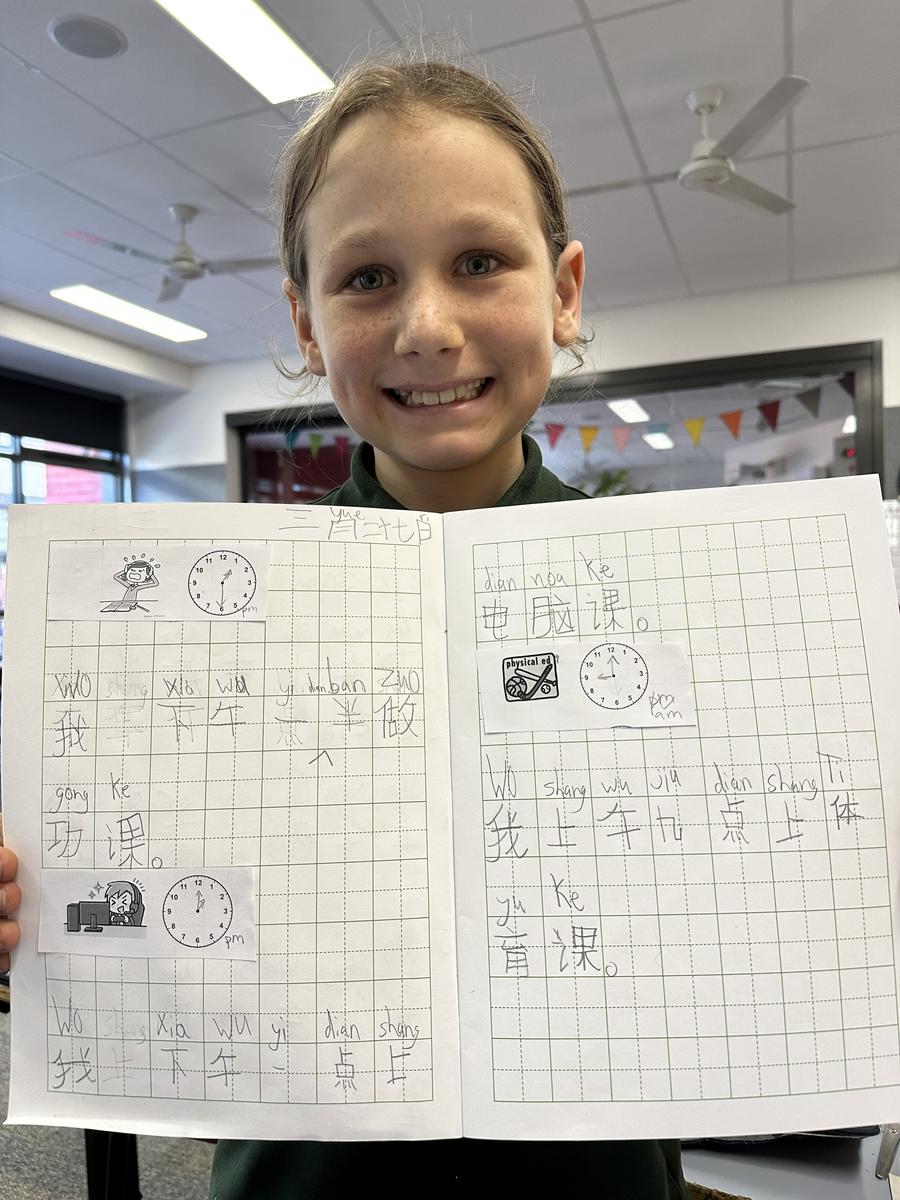 三月二十七日
yue
pm
xWO xia wu yi dian ban ZUO
我 下 午 一 点 半 做
gong ke
功 课 。
pm
Wo xia wu yi dian shang
我 下 午 一 点 上
dian nou ke
电 脑 课 。
physical ed
am
Wo shang wu jiu dian shang Ti
我 上 午 九 点 上 体
yu ke
育 课 。